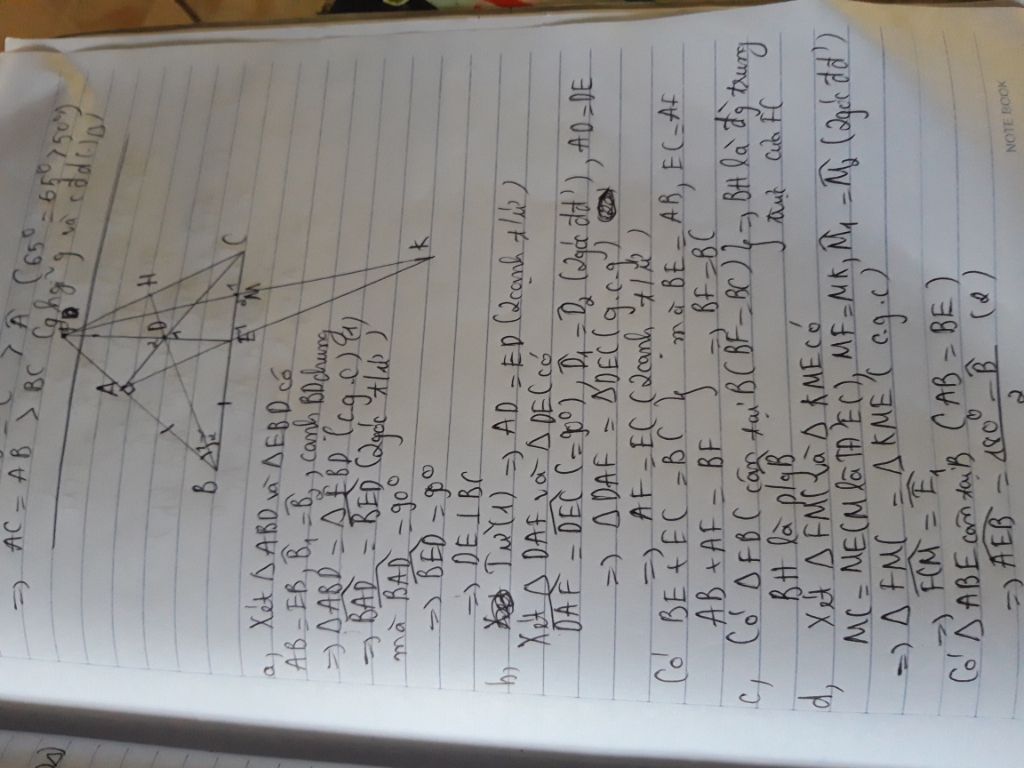 => AC = AB > BC > A (65° = 65° > 50°)
(qhgĩ g và cđd (1Δ)
A
B
C
D
E
H
M
K
a, Xét Δ ABD và Δ EBD có
AB = EB, B₁ = B₂, cạnh BD chung
=> ΔABD = Δ EBD (c.g.c) (1)
=> BAD = BED (2góc t/ứ)
mà BAD = 90°
=> BED = 90°
=> DE ⊥ BC
b, Từ (1) => AD = ED (2 cạnh t/ứ)
Xét Δ DAF và Δ DEC có
DAF = DEC (= 90°), D₁ = D₂ (2góc đđ'), AD = DE
=> Δ DAF = Δ DEC (g.c.g)
=> AF = EC (2 cạnh t/ứ)
Có BE + EC = BC } mà BE = AB, EC = AF
AB + AF = BF => BF = BC
c, Có Δ FBC cân tại B (BF = BC) } => BH là đg trung
BH là p/g B trực của FC
d, Xét Δ FMC và Δ KME có
MC = ME (M là TĐ EC), MF = MK, M₁ = M₂ (2góc đđ')
=> Δ FMC = Δ KME (c.g.c)
=> FCM = E₁
Có Δ ABE cân tại B (AB = BE)
=> AEB = 180° - B / 2 (2)
NOTE BOOK